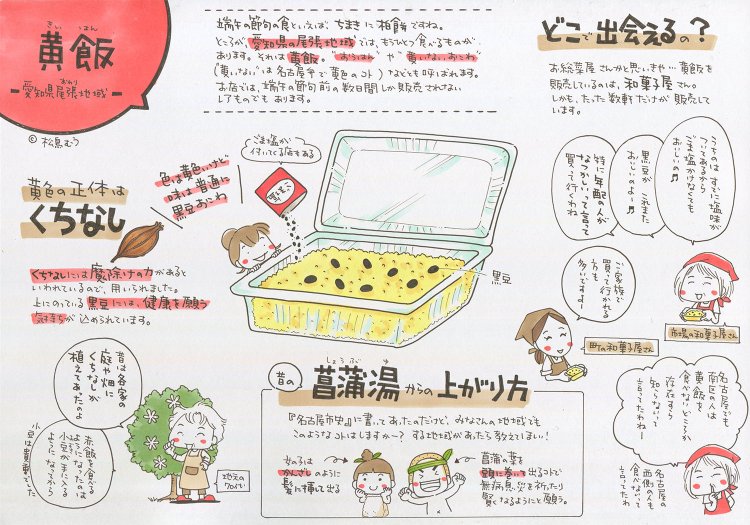 きいはん
黄飯
おわり
愛知県尾張地域
©松鳥むう
端午の節句の食といえば、ちまきに柏餅ですね。
ところが、愛知県の尾張地域では、もうひとつ食べるものが
あります。それは黄飯。“おうはん”や“黄いないおこわ”
(“黄いない”は名古屋弁で黄色のコト)などとも呼ばれます。
お店では、端午の節句前の数日間しか販売されない
レアものでもあります。
どこで出会えるの?
お総菜屋さんかと思いきや…黄飯を
販売しているのは、和菓子屋さん。
しかも、たった数軒だけが販売して
います。
こっちのは すでに塩味が
ついてあるから
ごま塩かけなくても
おいしいの♬
黒豆が これまた
おいしいのよ〜♬
特に年配の人が
なつかしいって
買って行くわね
市場の和菓子屋さん
ご家族で
買って行かれる
方も
多いですよー
町の和菓子屋さん
黄色の正体は
くちなし
色は黄色いけど
味は普通に
黒豆おこわ
くちなしには魔除けの力があると
いわれているので、用いられました。
上にのっている黒豆には、健康を願う
気持ちが込められています。
ごま塩が
付いてくる店もある
ごましお
黒豆
昔は各家の
庭や畑に
くちなしが
植えてあったのよ
赤飯を食べる
ようになったのは
小豆が手に入る
ようになってから
小豆は貴重でした
地元の
方
昔の
しょうぶゆ
菖蒲湯からの上がり方
『名古屋市史』に書いてあったのだけど、みなさんの地域でも
このようなコトはしますか〜?する地域があったら教えてほしい!
女の子は
かんざしのように
髪に挿して出る
菖蒲の葉を
頭に巻いて出るコトで
無病息災を祈ったり
賢くなるようにと願う。
名古屋でも
南区の人は
黄飯を
食べないどころか
知らないって
存在すら
言ってたわねー
名古屋の
西側の人も
食べないって
言ってたわ